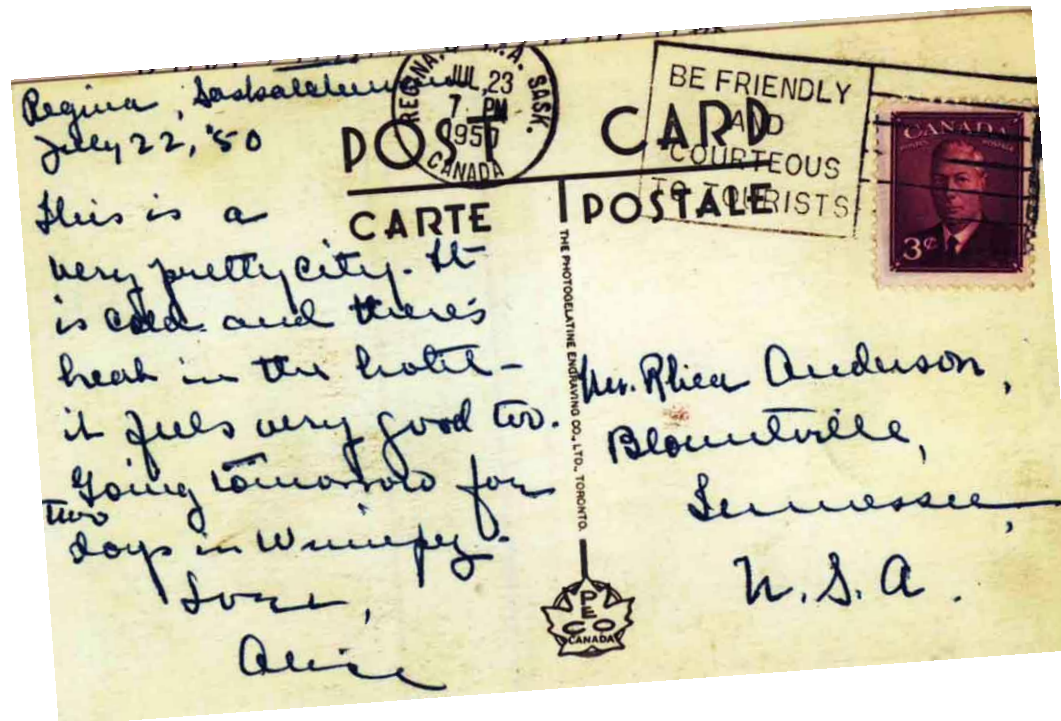 Regina, Saskatchewan
July 22, '50
This is a
very pretty city. It
is cold and there's
heat in the hotel –
it feels very good too.
Going tomorrow for
two
days in Winnipeg.
Love,
Alice
POST CARD
CARTE POSTALE
REGINA SASK.
JUL 23
7 PM
1950
CANADA
BE FRIENDLY
AND
COURTEOUS
TO TOURISTS
CANADA
POSTES POSTAGE
3¢
THE PHOTOGELATINE ENGRAVING CO., LTD., TORONTO.
PECO
CANADA
Rhea Anderson,
Blountville,
Tennessee,
U.S.A.